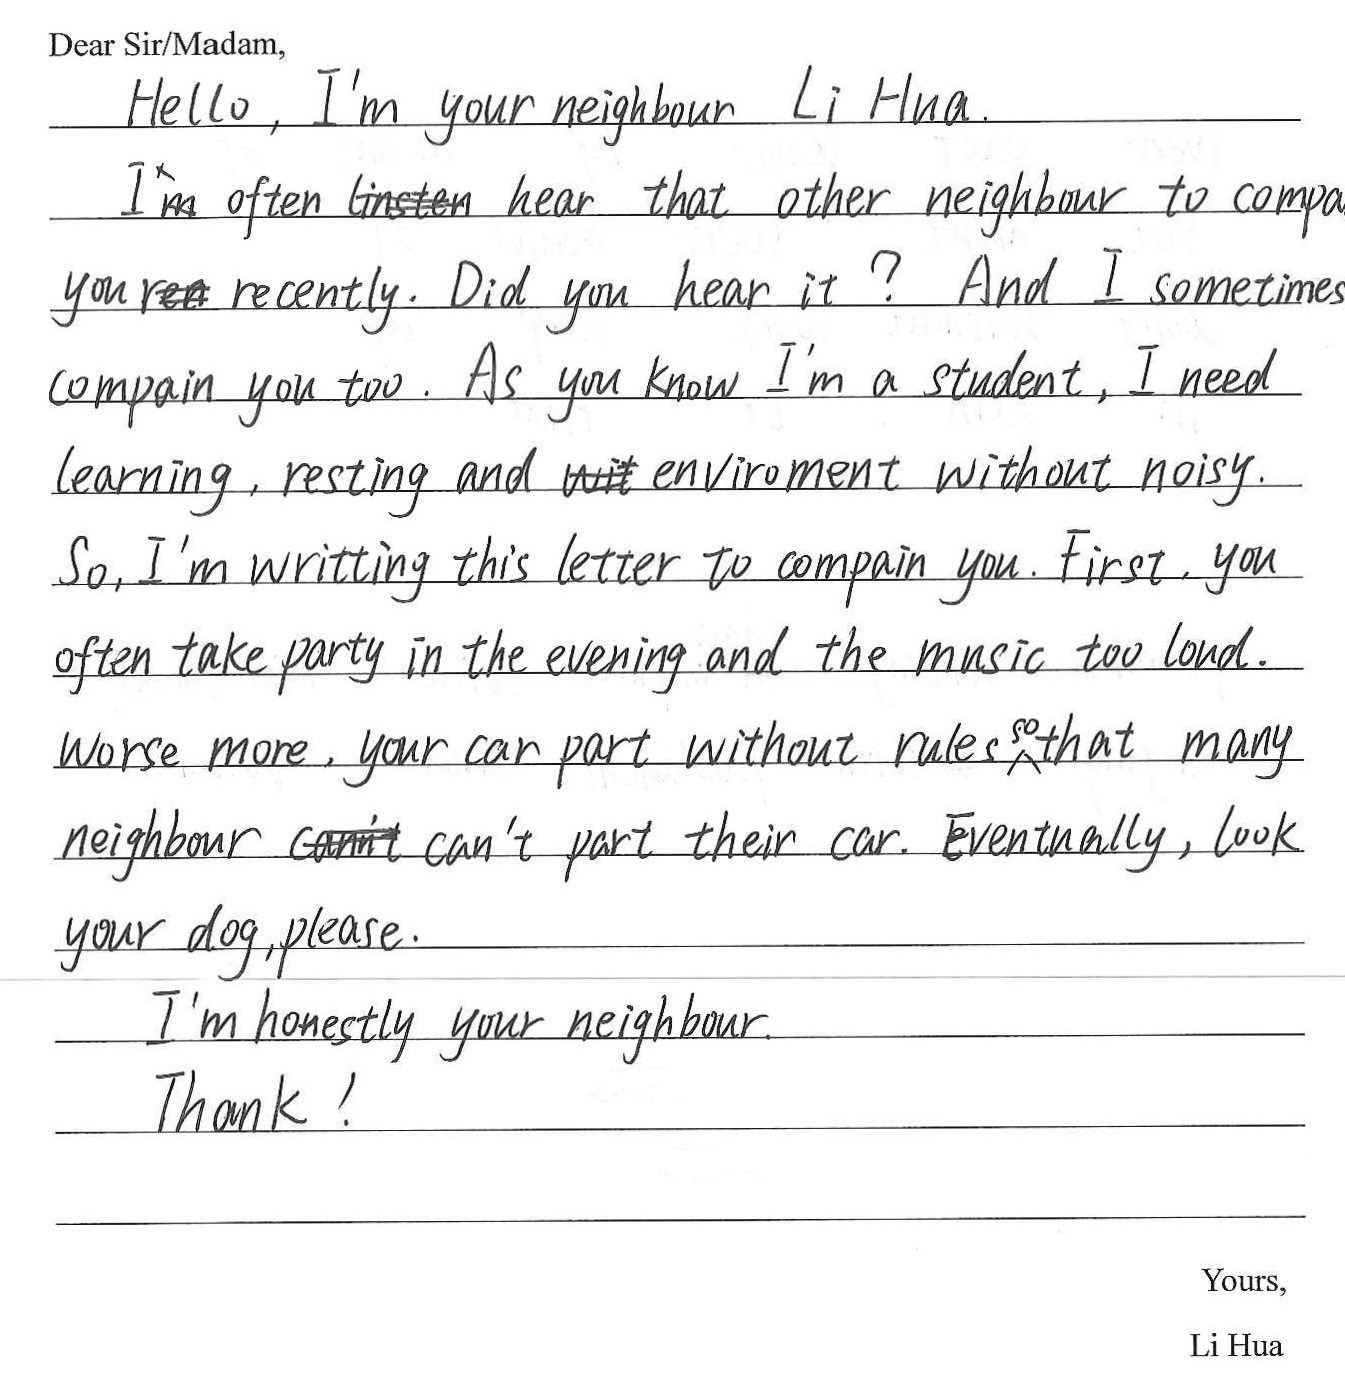 Dear Sir/Madam,
Hello, I'm your neighbour Li Hua.
I often hear that other neighbour to compa
you recently. Did you hear it? And I sometimes
compain you too. As you know I'm a student, I need
learning, resting and enviroment without noisy.
So, I'm writting this letter to compain you. First, you
often take party in the evening and the music too loud.
Worse more, your car part without rules so that many
neighbour can't part their car. Eventually, look
your dog, please.
I'm honestly your neighbour.
Thank!
Yours,
Li Hua